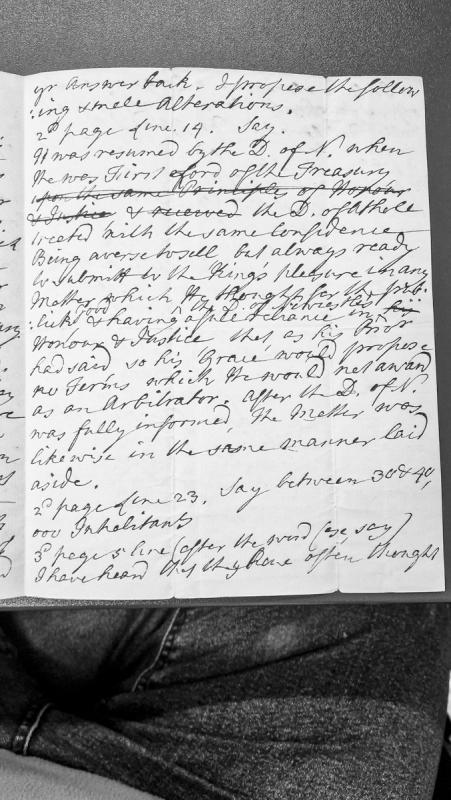 yr Answer back. I propose the follow
:ing small Alterations.
2d page Line. 14. Say.
It was resumed by the D. of N. when
He was First Lord of the Treasury
upon the same Principles of Honour
& Justice & renewed the D. of Athole
treated with the same Confidence
Being averse to sell, but always ready
to submit to the Kings pleasure in any
Matter which He thought for the pub:
:lick good & having a full reliance in his
the D. of
Honour & Justice that as his Prior
had said so his Grace would propose
no Terms which He would not award
as an Arbitrator. after the D. of N.
was fully informed, The Matter was
likewise in the same manner laid
aside.
2d page Line 23. Say between 30 & 40,
000 Inhabitants
3d page 5 line (after the word Case say)
I have heard that they have often thought